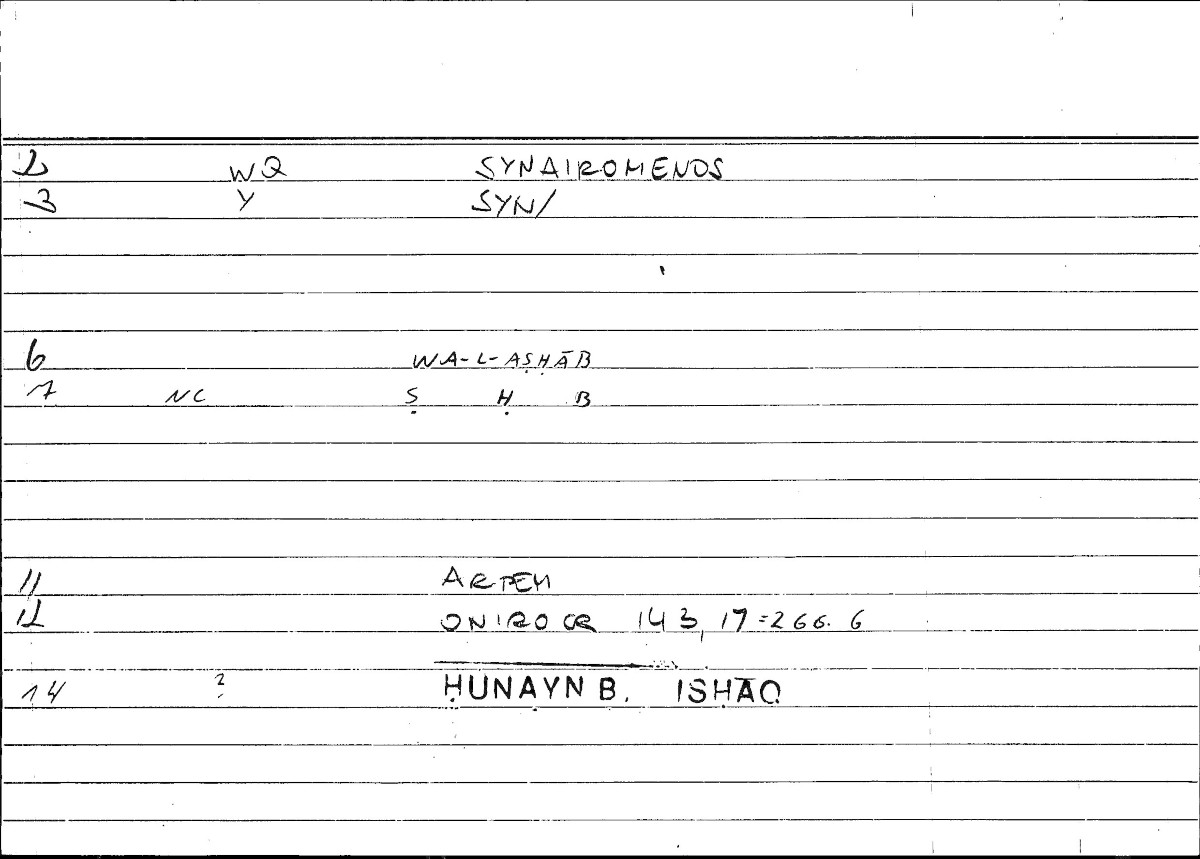 2 WQ SYNAIROMENOS
3 Y SYN/
6 WA-L-AṢḤĀB
7 NC Ṣ Ḥ B
11 ARTEM
12 ONIROCR 143,17=266.6
14 ? ḤUNAYN B. ISḤĀQ